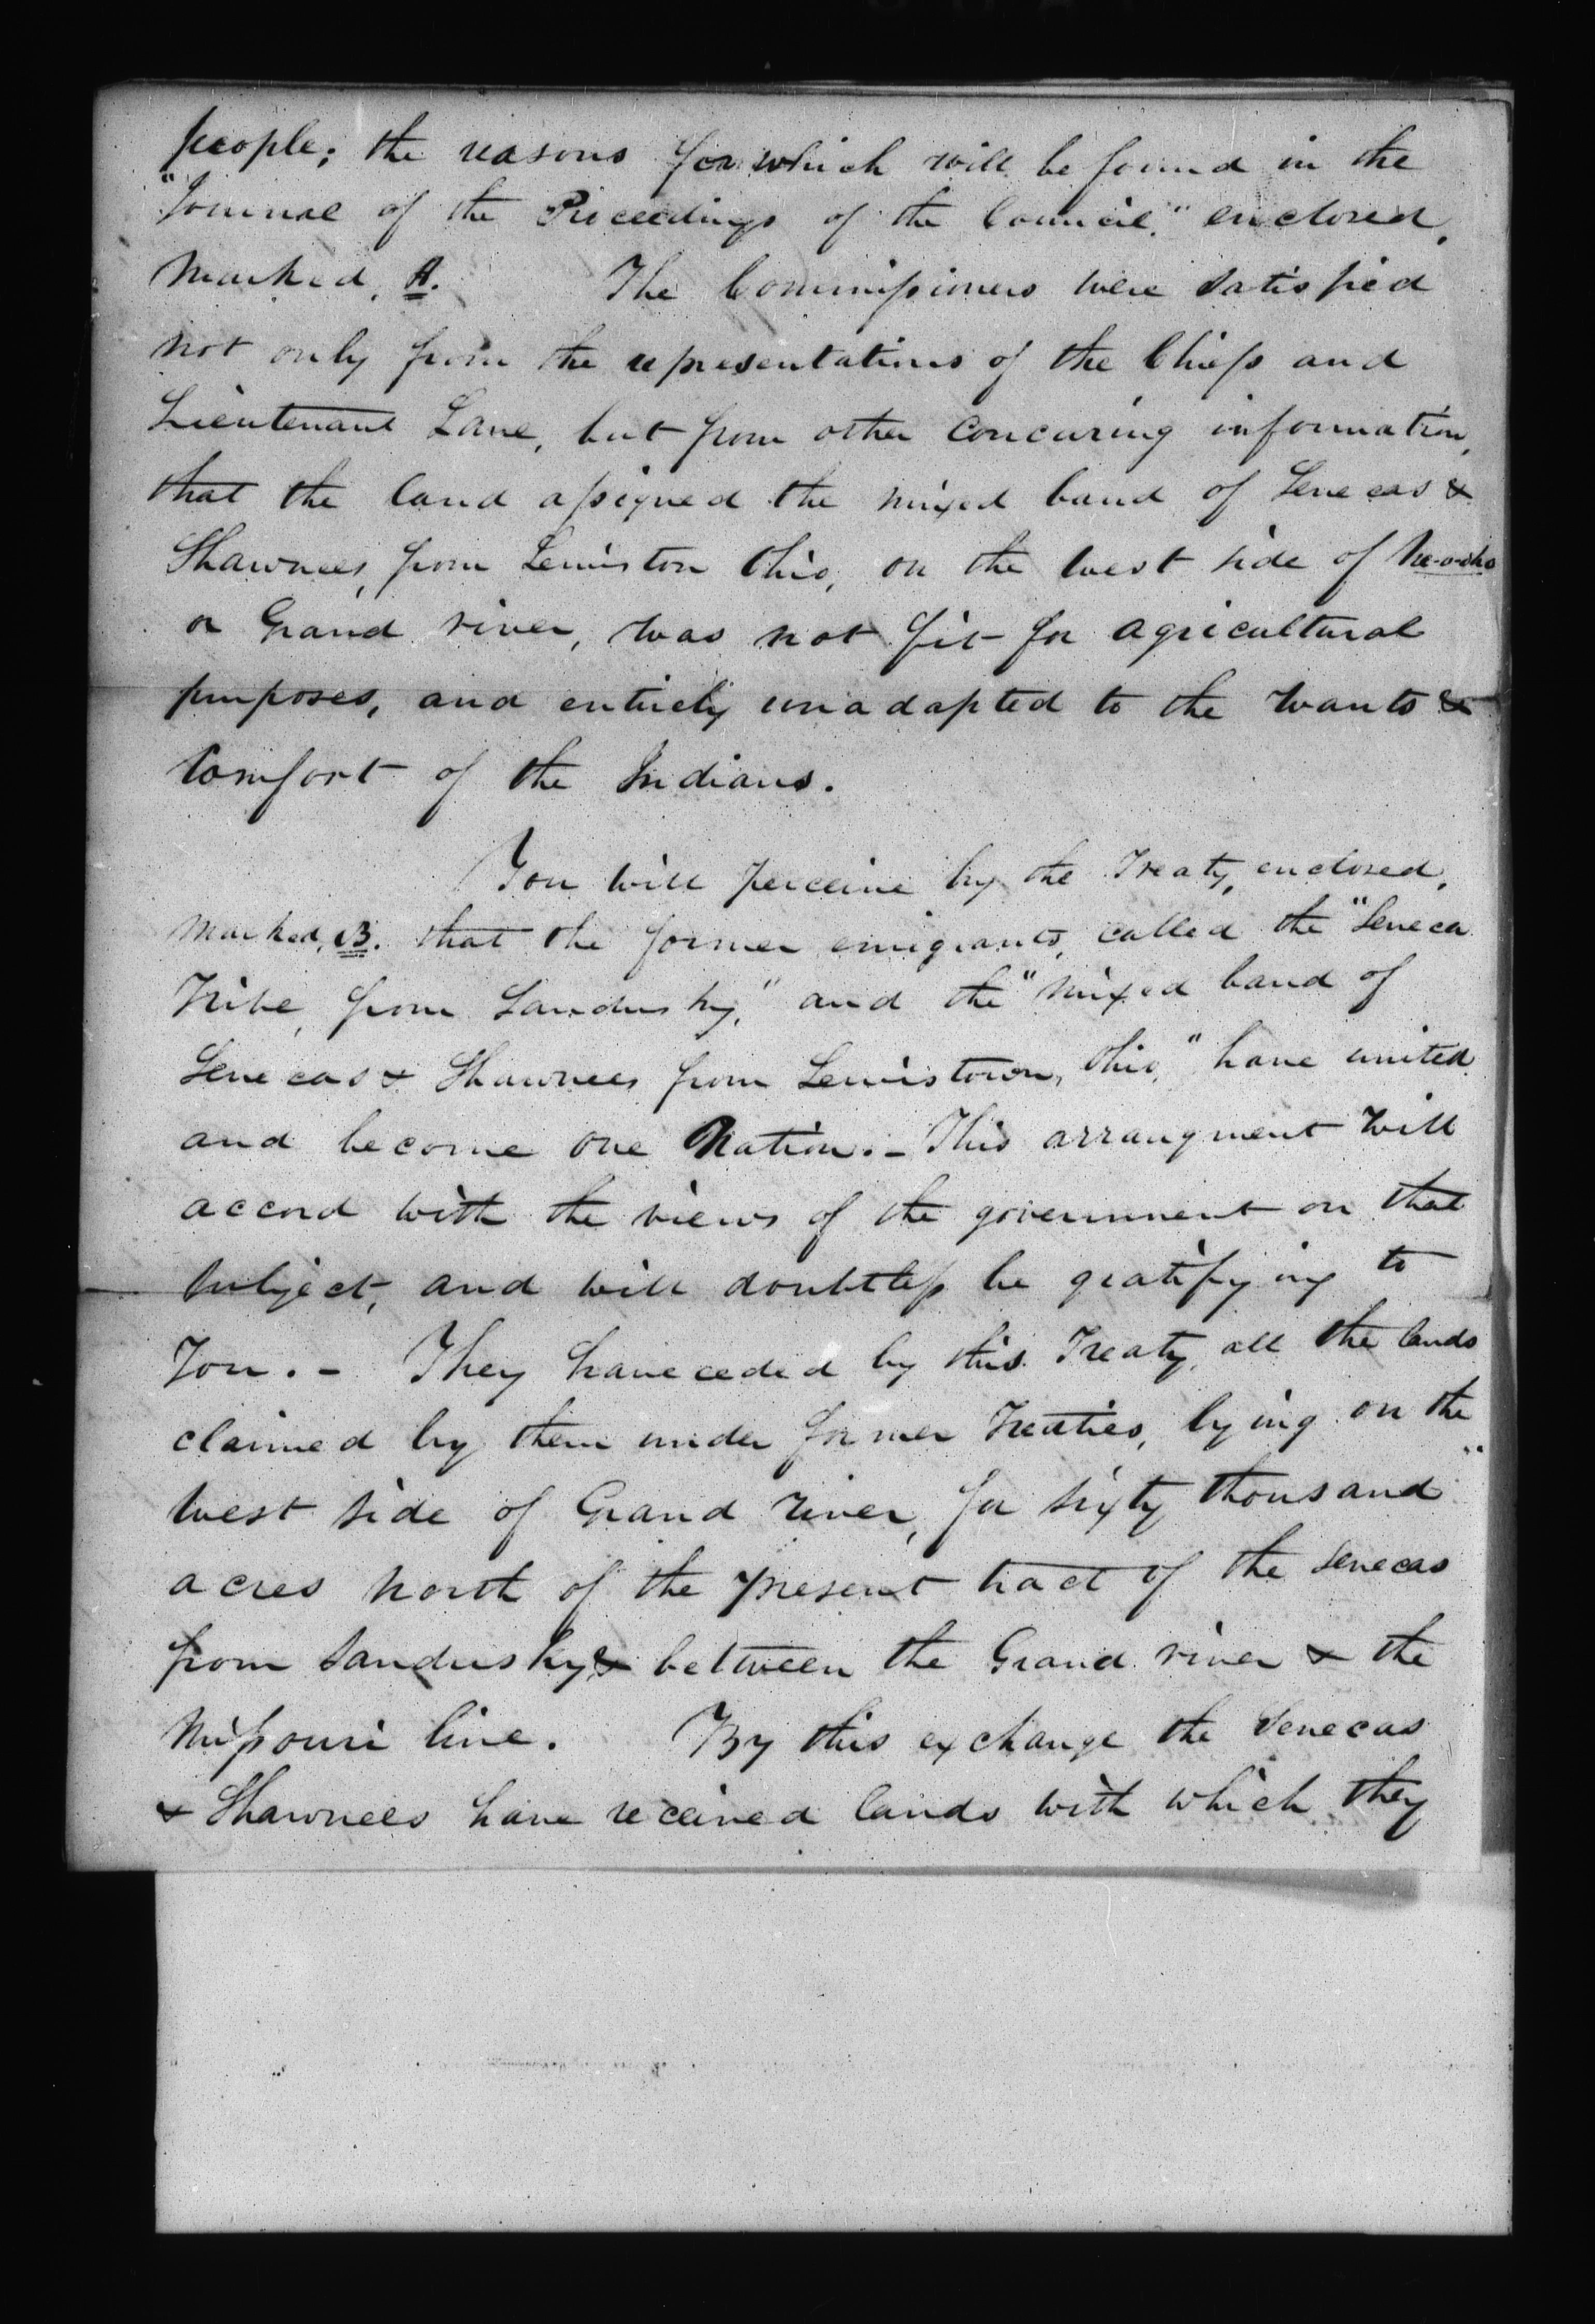 people; the reasons for which will be found in the
"Journal of the Proceedings of the Council," enclosed,
Marked, A. The Commissioners were satisfied
not only from the representations of the Chiefs and
Lieutenant Lane, but from other concuring information,
that the land assigned the mixed band of Senecas &
Shawnees, from Lewiston Ohio, on the west side of Ne-o-sho
or Grand river, was not fit for agricultural
purposes, and entirely unadapted to the wants &
Comfort of the Indians.
You will perceive by the Treaty, enclosed,
Marked, B. that the former emigrants, called the "Seneca
Tribe, from Sandusky," and the "mixed band of
Senecas & Shawnees from Lewistown, Ohio," have united
and become one Nation. – This arrangment will
accord with the views of the government on that
subject, and will doubtless be gratifying to
You. – They have ceded by this Treaty, all the lands
claimed by them under former treaties, lying on the
west side of Grand river, for sixty thousand
acres north of the present tract of the Senecas
from Sandusky & between the Grand river & the
Missouri line. By this exchange the Senecas
& Shawnees have received lands with which they